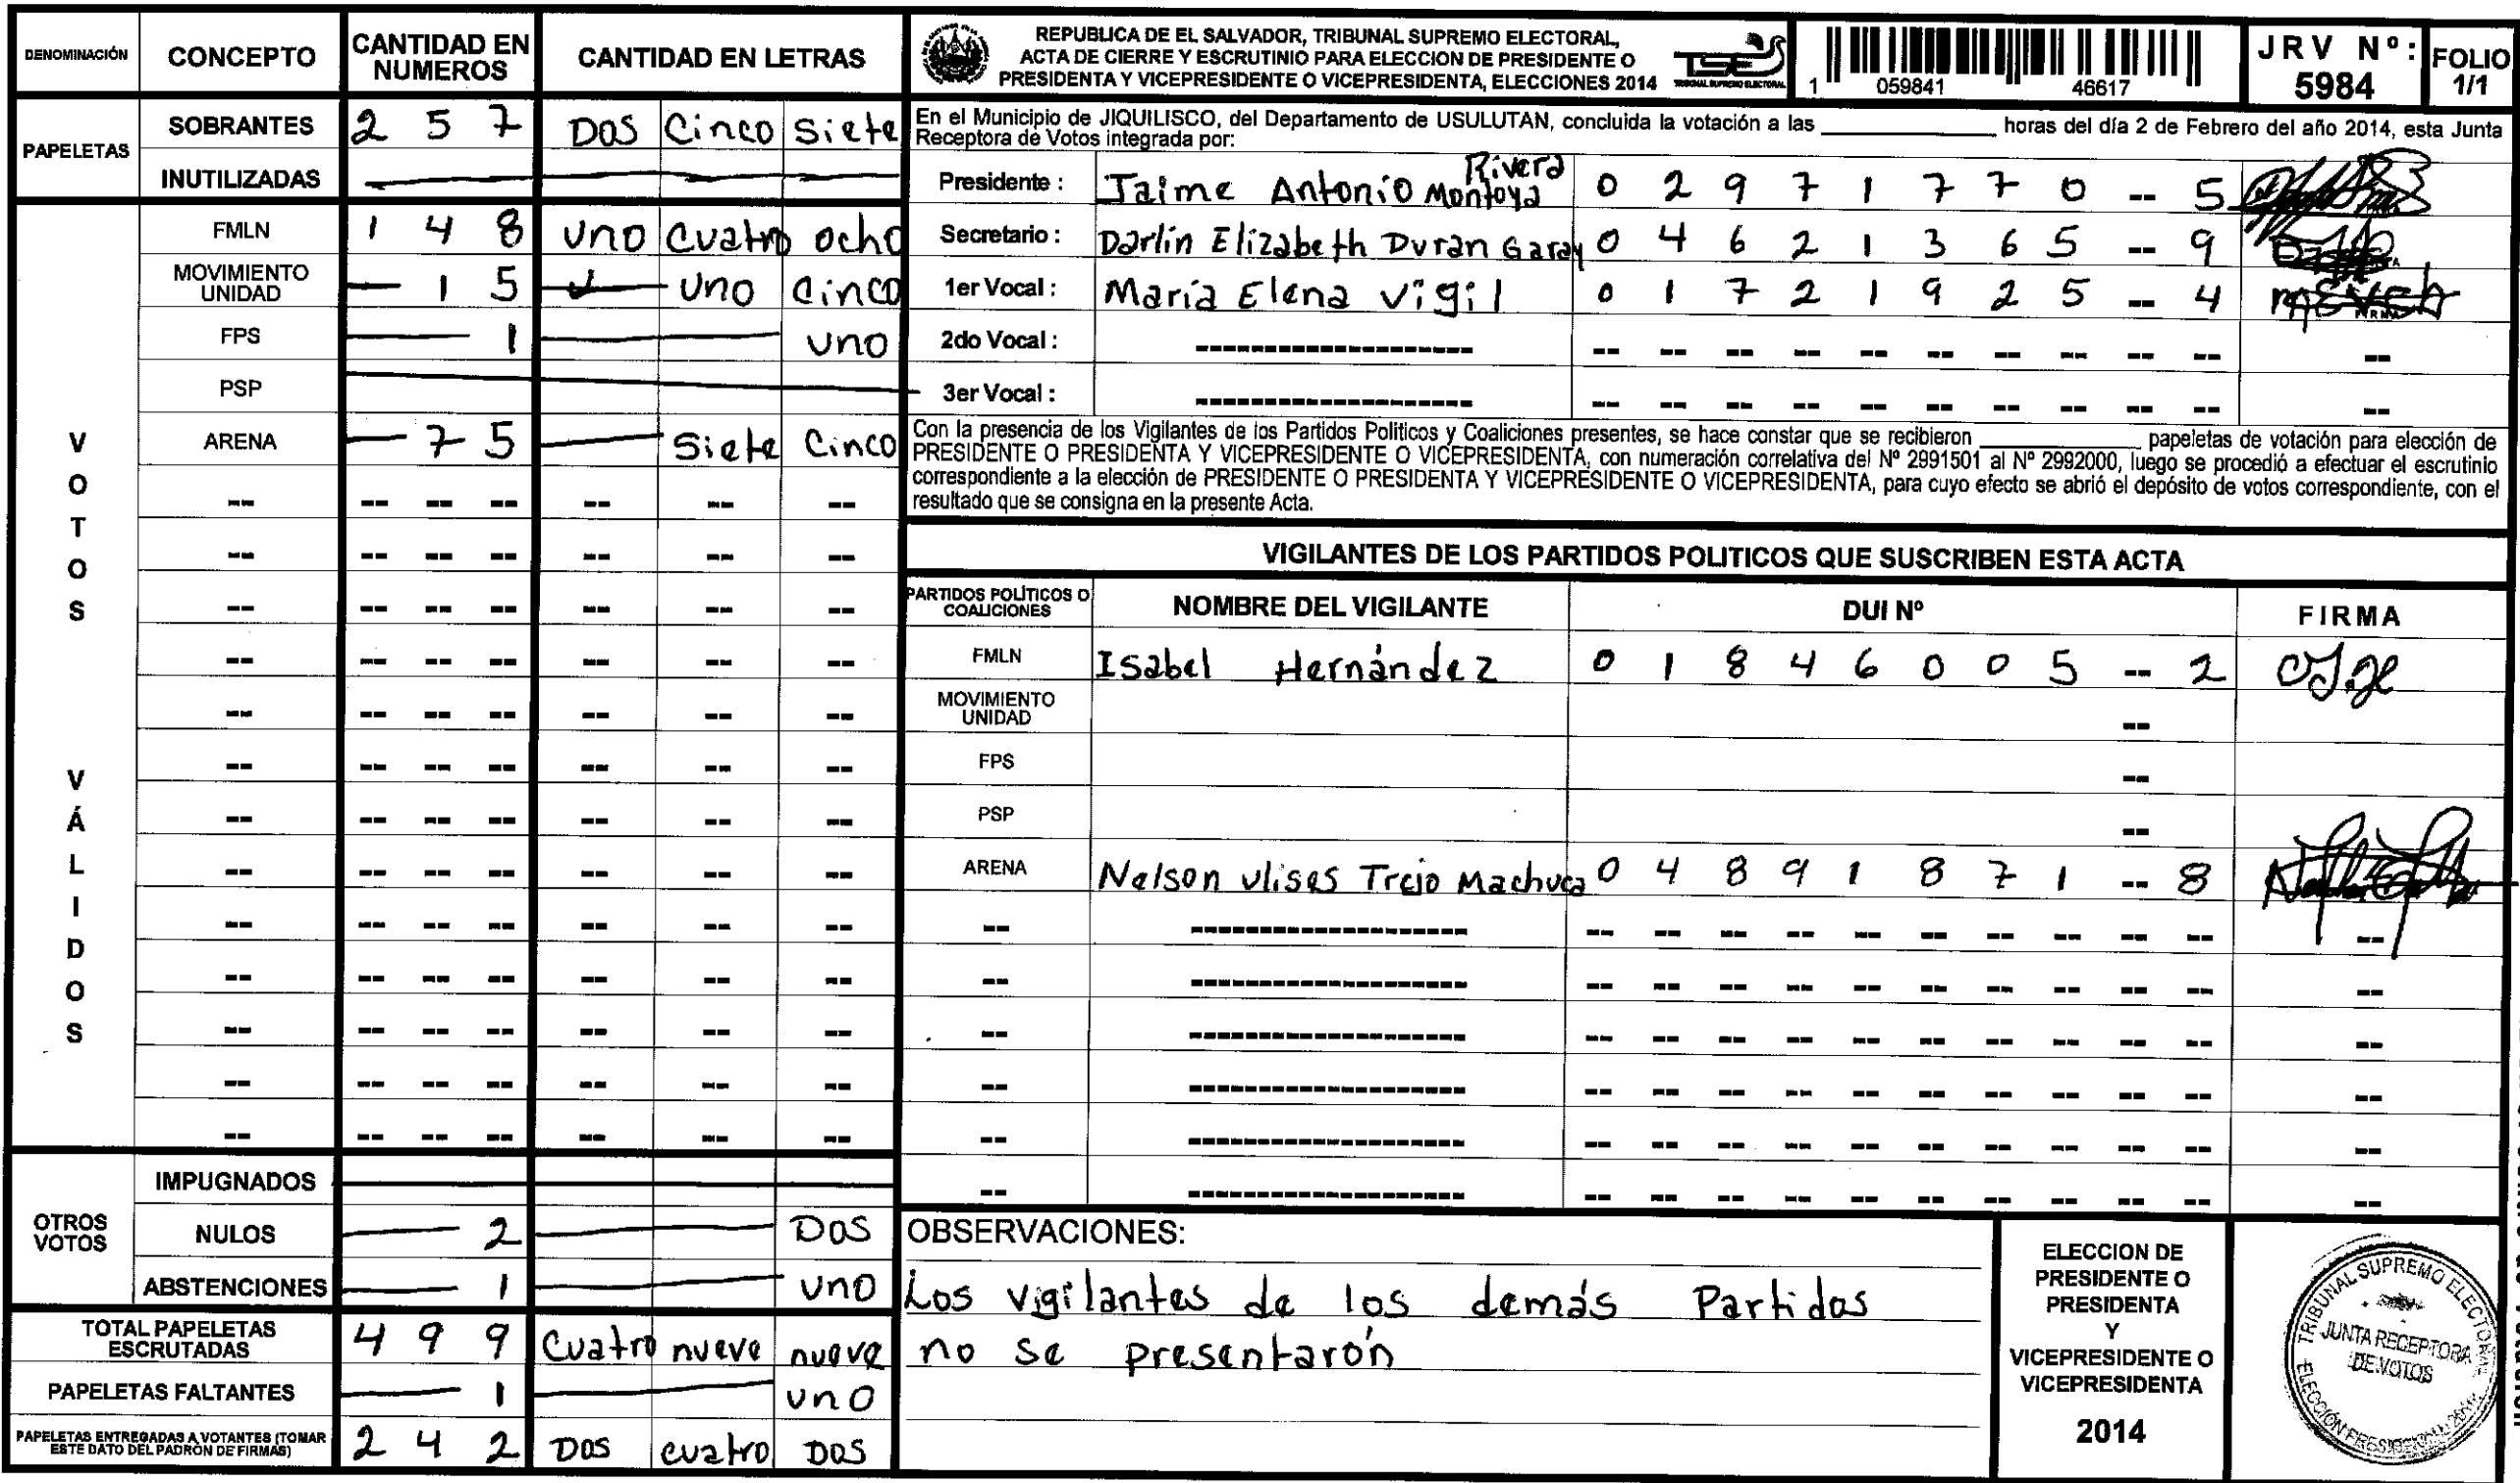 DENOMINACIÓN CONCEPTO CANTIDAD EN NUMEROS CANTIDAD EN LETRAS
PAPELETAS
SOBRANTES 2 5 7 DOS Cinco Siete
INUTILIZADAS
VOTOS VÁLIDOS
FMLN 1 4 8 uno cuatro ocho
MOVIMIENTO UNIDAD 1 5 uno cinco
FPS 1 uno
PSP
ARENA 7 5 Siete Cinco
OTROS VOTOS
IMPUGNADOS
NULOS 2 DOS
ABSTENCIONES 1 uno
TOTAL PAPELETAS ESCRUTADAS 4 9 9 Cuatro nueve nueve
PAPELETAS FALTANTES 1 uno
PAPELETAS ENTREGADAS A VOTANTES (TOMAR ESTE DATO DEL PADRÓN DE FIRMAS) 2 4 2 DOS cuatro DOS
REPUBLICA DE EL SALVADOR, TRIBUNAL SUPREMO ELECTORAL,
ACTA DE CIERRE Y ESCRUTINIO PARA ELECCION DE PRESIDENTE O
PRESIDENTA Y VICEPRESIDENTE O VICEPRESIDENTA, ELECCIONES 2014
TSE
TRIBUNAL SUPREMO ELECTORAL
1 059841 46617
JRV Nº: 5984
FOLIO 1/1
En el Municipio de JIQUILISCO, del Departamento de USULUTAN, concluida la votación a las ____ horas del día 2 de Febrero del año 2014, esta Junta
Receptora de Votos integrada por:
Presidente : Jaime Antonio Rivera Montoya 0 2 9 7 1 7 7 0 -- 5
Secretario : Darlin Elizabeth Duran Garay 0 4 6 2 1 3 6 5 -- 9
1er Vocal : María Elena Vigil 0 1 7 2 1 9 2 5 -- 4
2do Vocal :
3er Vocal :
Con la presencia de los Vigilantes de los Partidos Politicos y Coaliciones presentes, se hace constar que se recibieron ____ papeletas de votación para elección de
PRESIDENTE O PRESIDENTA Y VICEPRESIDENTE O VICEPRESIDENTA, con numeración correlativa del Nº 2991501 al Nº 2992000, luego se procedió a efectuar el escrutinio
correspondiente a la elección de PRESIDENTE O PRESIDENTA Y VICEPRESIDENTE O VICEPRESIDENTA, para cuyo efecto se abrió el depósito de votos correspondiente, con el
resultado que se consigna en la presente Acta.
VIGILANTES DE LOS PARTIDOS POLITICOS QUE SUSCRIBEN ESTA ACTA
PARTIDOS POLÍTICOS O COALICIONES NOMBRE DEL VIGILANTE DUI Nº FIRMA
FMLN Isabel Hernández 0 1 8 4 6 0 0 5 -- 2
MOVIMIENTO UNIDAD --
FPS --
PSP --
ARENA Nelson Ulises Trejo Machuca 0 4 8 9 1 8 7 1 -- 8
OBSERVACIONES:
Los vigilantes de los demás Partidos
no se presentarón
ELECCION DE
PRESIDENTE O
PRESIDENTA
Y
VICEPRESIDENTE O
VICEPRESIDENTA
2014
TRIBUNAL SUPREMO ELECTORAL
JUNTA RECEPTORA
DE VOTOS